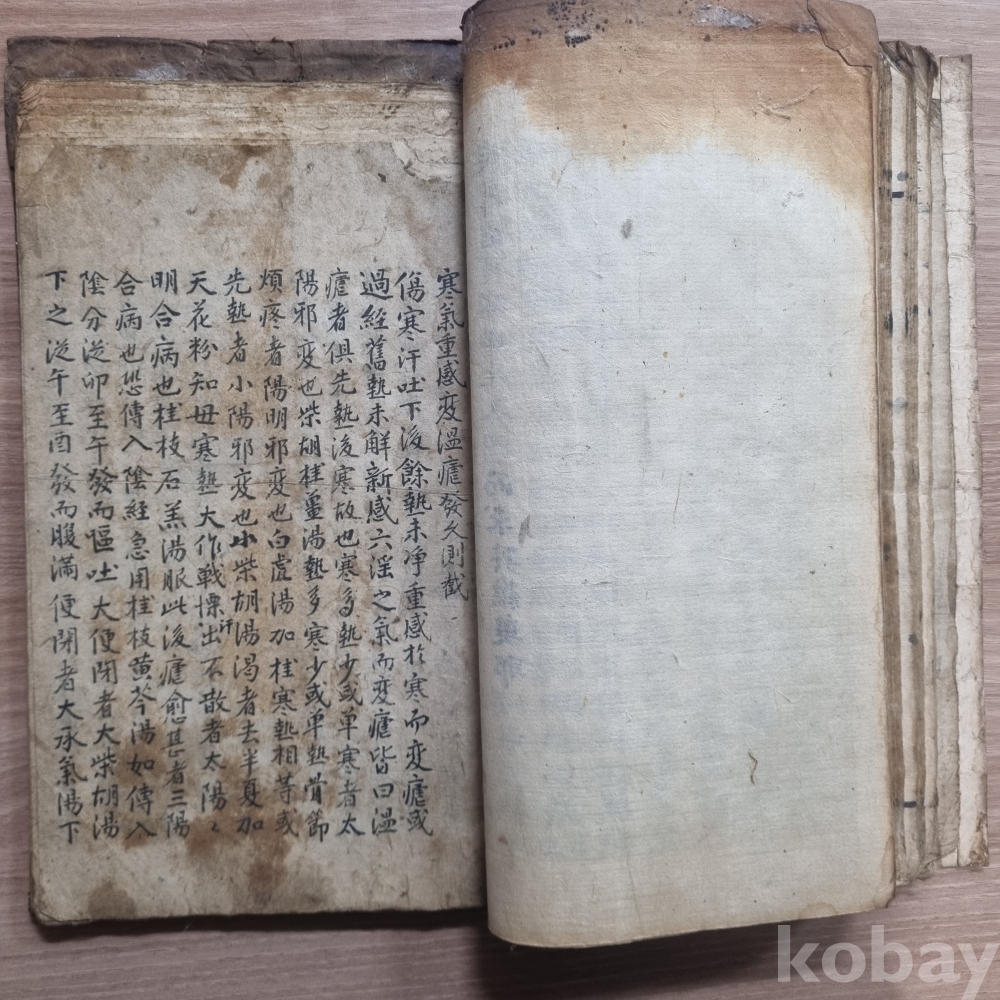 寒氣重感变溫瘧發久則截
傷寒汗吐下後餘熱未凈重感於寒而变瘧或
過經舊熱未解新感六淫之氣而变瘧皆曰溫
瘧者俱先熱後寒故也寒多熱少或单寒者太
陽邪变也柴胡桂薑湯熱多寒少或单熱骨節
煩疼者陽明邪变也白虎湯加桂寒熱相等或
先熱者小陽邪变也小柴胡湯渴者去半夏加
天花粉知母寒熱大作戦慄汗出不散者太陽〻
明合病也桂枝石羔湯服此後瘧愈甚者三陽
合病也恐傳入陰経急用桂枝黄芩湯如傳入
陰分從卯至午發而嘔吐大便閉者大柴胡湯
下之從午至酉發而腹滿便閉者大承氣湯下
kobay